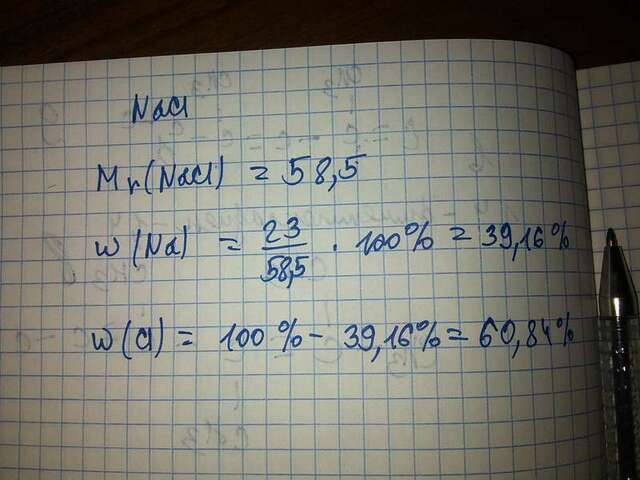 NaCl
Mr(NaCl) = 58,5
w(Na) = 23/58,5 · 100% = 39,16%
w(Cl) = 100% - 39,16% = 60,84%